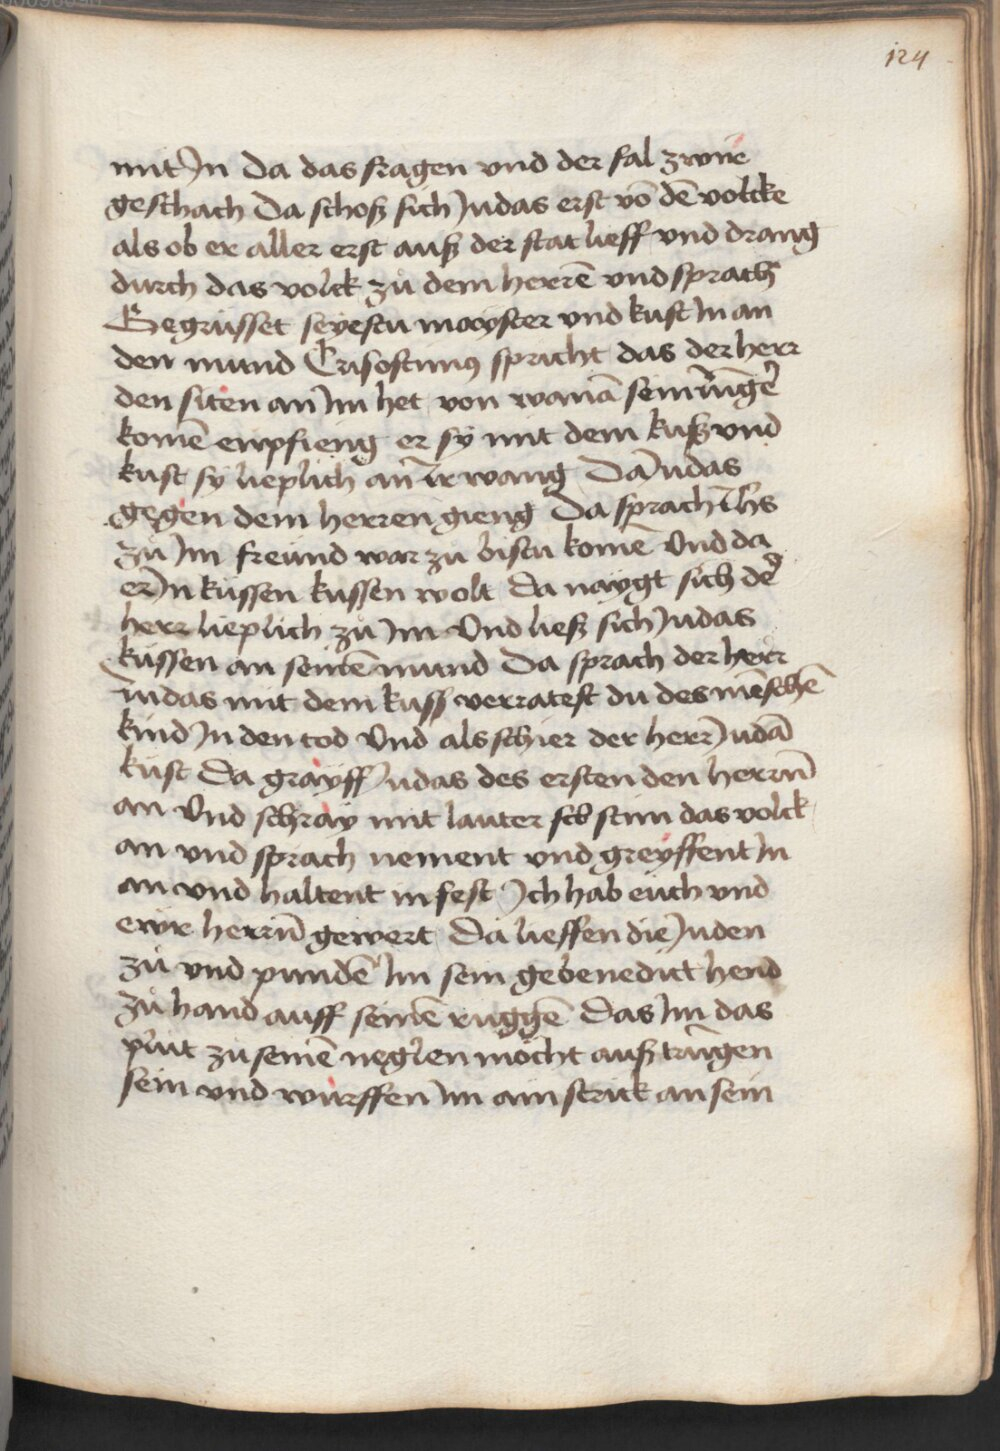 124
mit Jn Da das fragen vnd der fal zwir
geschach Da schosz sich Judas erst vō dē volcke
als ob er aller erst ausz der stat lieff vnd drang
durch das volck zů dem herrē vnd sprach
Gegrüsset seyestu mayster vnd kust Jn an
den mund Crisostimus spricht das der herr
den siten an Jm het von wanā sein iūgē
komē enpfieng er sy mit dem kusz vnd
kust sy lieplich an ir wang Da Judas
gegen dem herren gieng Da sprach ihs
zů Jm freund war zu bistu komē Vnd da
er Jn küssen kussen wolt da naygt sich dē
herr lieplich zů Jm Vnd liesz sich Judas
küssen an seinē mund Da sprach der herr
iudas mit dem kuss verratest du des mēschē
kind Jn den tod Vnd als schier der herr Judā
kust Da grayff Judas des ersten den herrn̄
an Vnd schray mit lauter stim das volck
an vnd sprach nement vnd greyffent Jn
an vnd haltent in fest Jch hab euch vnd
ewr herrn̄ gewert Da lieffen die Juden
zů vnd pundē Jm sein gebenedict hend
zů hand auff seinē ruggē Das Jm das
plut zu seinē neglen mocht ausz trūgen
sein vnd würffen Jm ain strick an sein